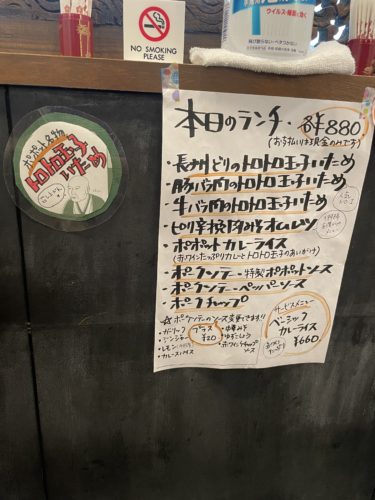 NO SMOKING
PLEASE
ウイルス・細菌に効く
ポポット名物
トロトロ玉子
いため
本日のランチ・各¥880
(お支払いは現金のみです)
・長州どりのトロトロ玉子いため
・豚バラ肉のトロトロ玉子いため
・牛バラ肉のトロトロ玉子いため
・ピリ辛挽肉みそオムレツ
・ポポットカレーライス
(赤ワインたっぷりカレーとトロトロ玉子のあいがけ)
・ポークソテー特製ポポットソース
・ポークソテーペッパーソース
・ポークチャップ
☆ポークソテーのソース変更できます
・ガーリック
・ジンジャー
・レモン
・カレースパイス
プラス
¥20
・中華みそ
・ゆずこしょう
・赤ワインケチャップ
ソース
サービスメニュー
ベーシック
カレーライス
¥660